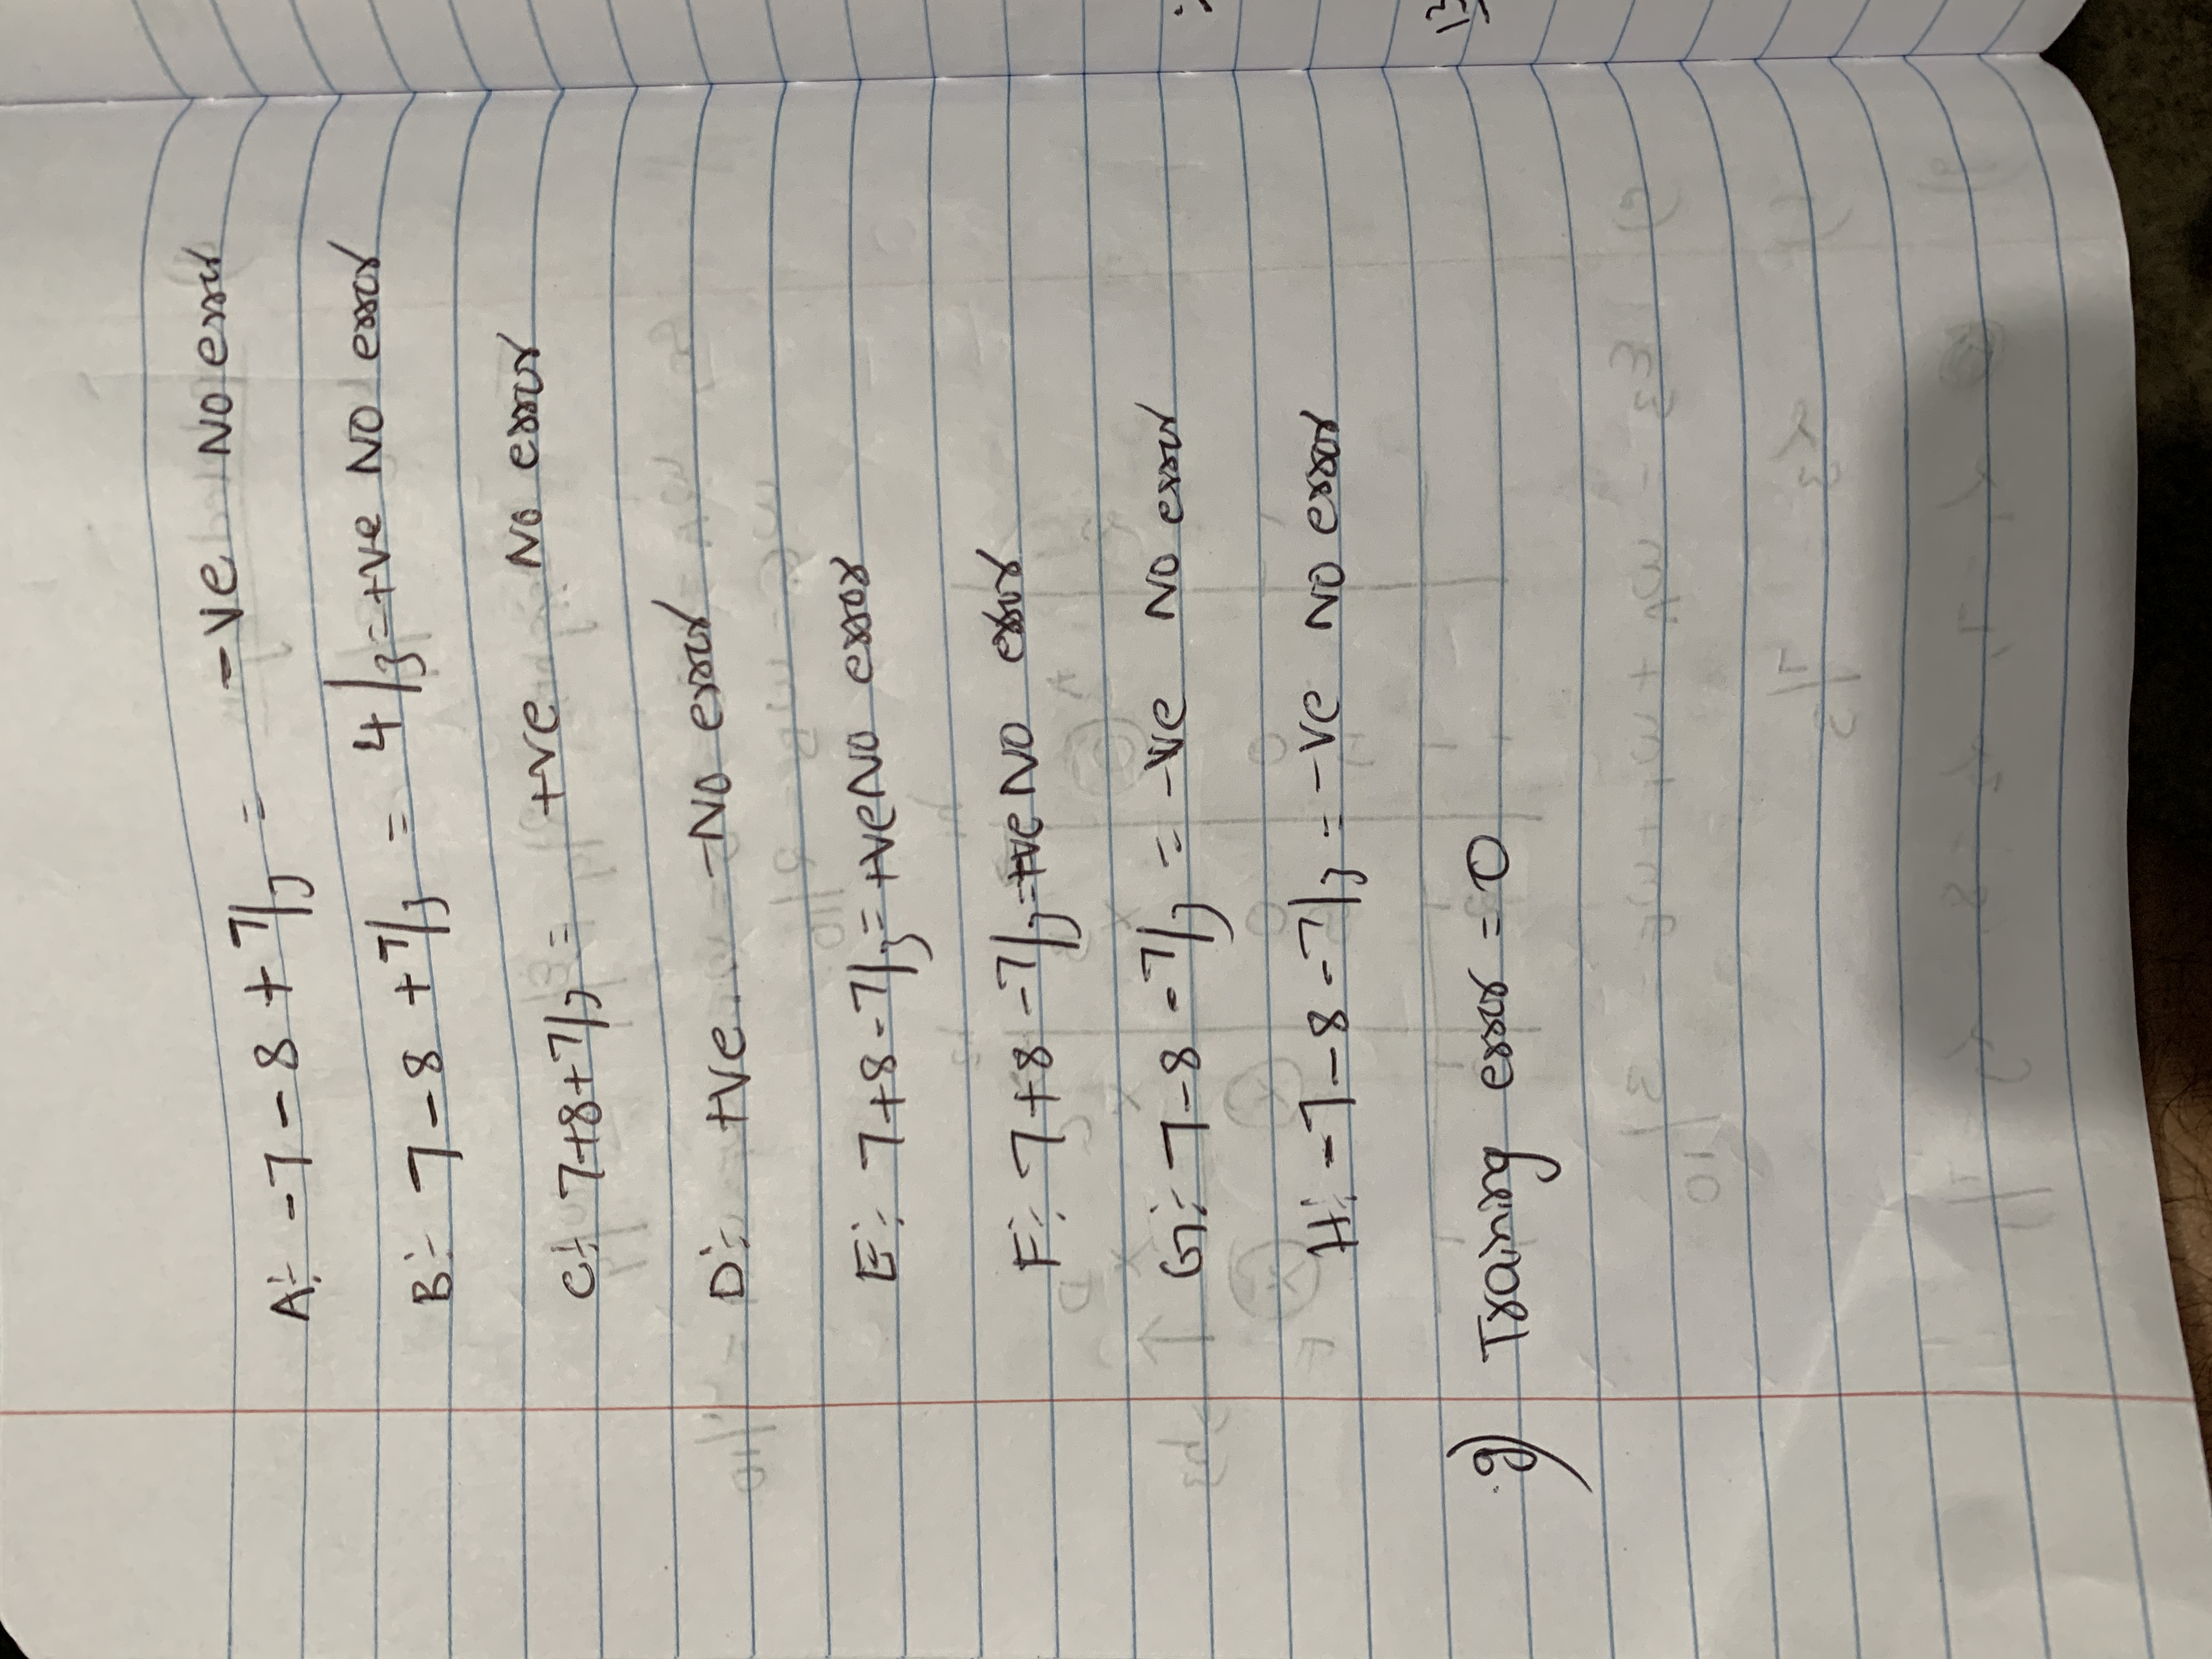 A:- -7-8+7/3 = -ve No error
B:- 7-8+7/3 = 4/3=+ve NO error
C:- 7+8+7/3 = +ve No error
D:- +ve -No error
E:- 7+8-7/3=+ve No error
F:- 7+8-7/3=+ve No error
G:- 7-8-7/3 = -ve No error
H:- -7-8-7/3=-ve No error
g) Training error = 0
13